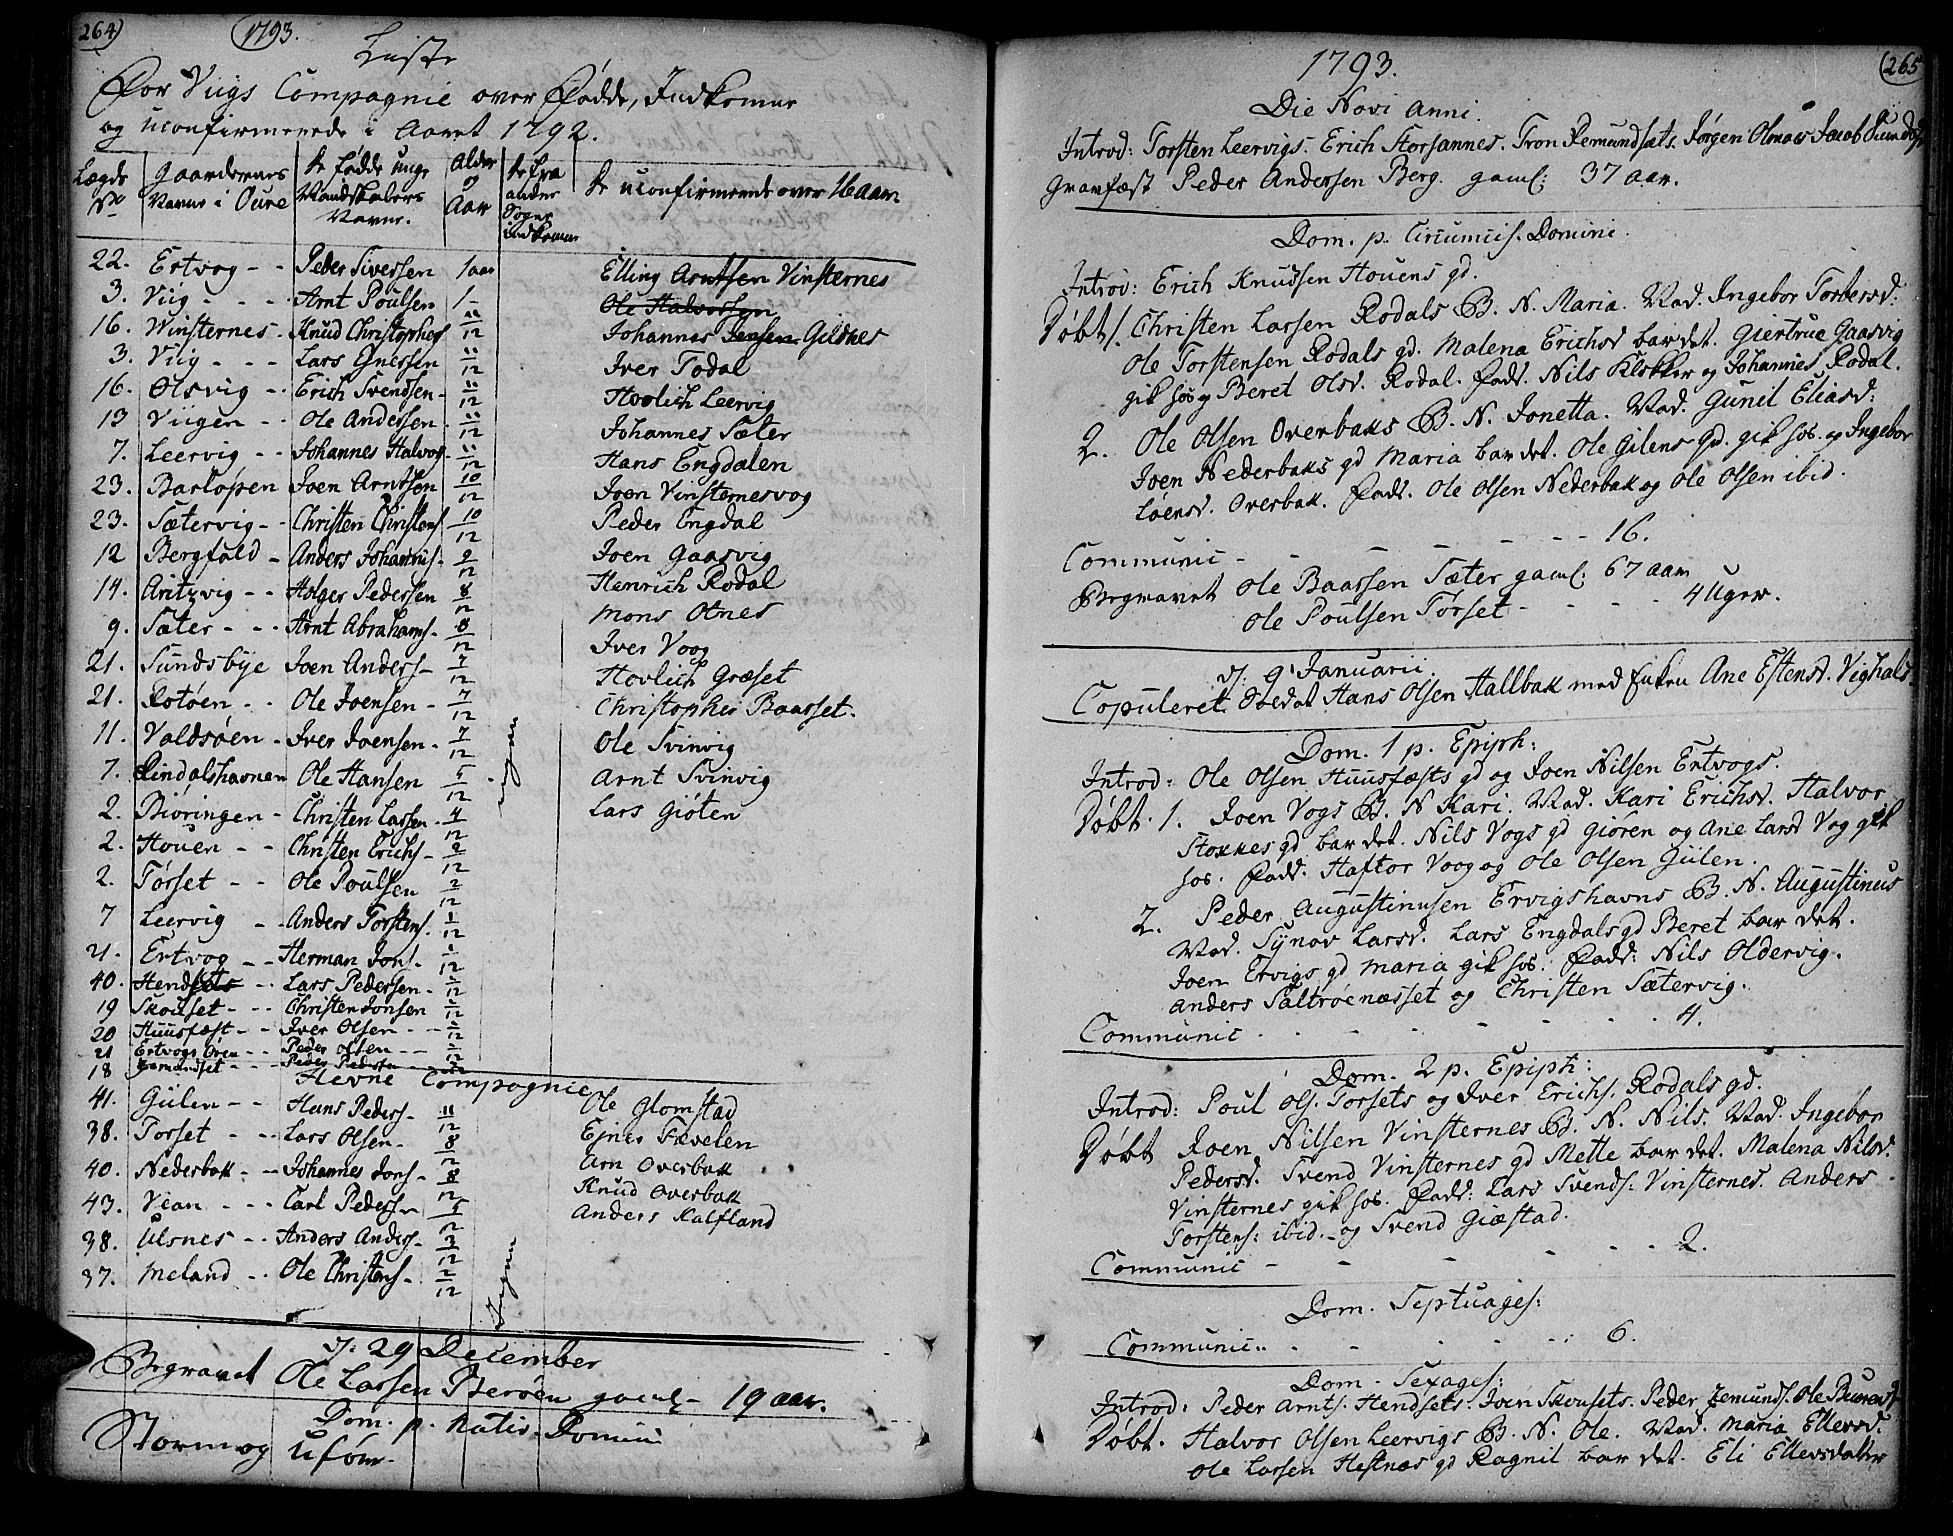 264) 1793.
Liste
For Viigs Compagnie over Fødde, Indkomne
og uconfirmerede i Aaret 1792.
Lægds No | Gaardernes Navne i Oure | De fødde unge Mandskabers Navne. | Alder Aar | De fra andre Sogne indkomne | De uconfirmerede over 16 aar
22. Ertvog - - Peder Sivessen 1 aar Elling Arntsen Vinsternes
3. Viig - - - Arnt Poulsen 1 - Ole Halvorsen
16. Winsternes - Knud Christophes 11/12 Johannes Jensen Gildnes
3. Viig - - - Lars Gnessen 11/12 Iver Todal
16. Olsvig - - Erich Svendsen - 11/12 Hovlich Leervig
13 Viigen - - Ole Andersen - 11/12 Johannes Sæter
7. Leervig - - Johannes Halvog - 11/12 Hans Engdalen
23. Barløpen Joen Arntsen 10/12 Joen Vinsternesvog
23. Sætervig - - Christen Christens - 10/12 Peder Engdal
12 Bergfald - Anders Johannis - 9/12 Joen Gaasvig
14. Aritzvig - - Holger Pedersen 8/12 Henrich Rodal
9. Sæter - - - Arnt Abrahams - 8/12 Mons Otnes
21. Sundsbye Joen Anders - 7/12 Iver Voog
21. Rotøen - - Ole Joensen - 7/12 Hovlich Græset
11. Valdsøen - Iver Joensen - 7/12 Christopher Baasset.
7. Lindalshavnen Ole Hansen 5/12 Ole Svinvig
2. Biøringen - Christen Larsen - 4/12 Arnt Svinvig
2. Houen - - Christen Erichs - 2/12 Lars Giøten
2. Tørset - - Ole Poulsen 2/12
7 Leervig - - Anders Torstens. 1/12
21. Ertvog - - Herman Jons - 1/12
40. Hendsets - - Lars Pedersen - 1/12
19 Skouset - - - Christen Jonsen 1/12
20 Huusfæst - - Iver Olsen - - 1/12
21 Ertvogs Øren - - Peder Olsen - - 1/12
18 Remundset - - - Peder Pedersen
Hevne Compagnie
41. Gülen - - Hans Peders - 11/12 Ole Glomstad
38. Torset - - - Lars Olsen - 8/12 Ejner Fævelen
40. Nederbak - - Johannes Jons - 8/12 Arn Overbak
43. Vean - - - Carl Pedersen - 5/12 Knud Overbak
38. Ulsnes - - Anders Anders - 3/12 Anders Kalfland
37. Meland - - Ole Christens - 2/12
Ingen
Ingen
D. 29 December
Begravet Ole Larsen Berøen gaml - 19 aar.
Dom. p. Natis. Domini
Storm og Uføre.
1793. 265
Die Novi Anni.
Introd: Torsten Leervigs. Erich Storsannes. Tron Remundsæts. Jørgen Olnæs Jacob
Gravfæst Peder Andersen Berg. gaml: 37 aar.
Dom. p. Circumcis. Domini.
Introd: Erich Knudsen Houens gd.
Døbt 1. Christen Larsen Rodals B. N. Maria. Mad. Ingebor Torbersd:
Ole Torstensen Rodals gd. Malena Erichsd bar det. Giertrue Gaasvig
gik hos og Beret Olsd. Rodal. Fadd. Nils Klokker og Johannes Rodal.
2. Ole Olsen Overbaks B. N. Jonetta. Mad. Gunil Eliasd:
Joen Nederbaks gd Maria bar det. Ole Gilens gd. gik hos. og Ingebor
Loensd. Overbak. Fadd. Ole Olsen Nederbak og Ole Olsen ibid.
Communic - - - - - - - - 16.
Begravet Ole Baarsen Sæter gaml: 67 aar
Ole Poulsen Tørset - - - - 4 Uger.
d. 9 Januarii
Copuleret Soldat Hans Olsen Hallbak med Enken Ane Estensd. Vigshals
Dom. 1 p. Epiph:
Introd: Ole Olsen Huusfæsts gd og Joen Nilsen Ertvogs.
Døbt. 1. Joen Vogs B. N Kari. Mad. Kari Erichsd. Halvor
Stokkes gd bar det. Nils Vogs gd Giøren og Ane Larsd Vog gik
hos. Fadd. Haftor Voog og Ole Olsen Gülen.
2. Peder Augustinusen Ervigshavns B. N. Augustinus
Mad. Synov Larsd. Lars Engdals gd Beret bar det.
Joen Ervigs gd Maria gik hos. Fadd: Nils Oldervig.
Anders Saltrøenæsset og Christen Sætervig.
Communic - - - - - - - 4.
Dom. 2 p. Epiph:
Introd: Poul Ols. Torsets og Iver Erichs. Rodals gd.
Døbt Joen Nilsen Vinsternes B. N. Nils. Mad. Ingebor
Pedersd. Svend Vinsternes gd Mette bar det. Malena Nilsd.
Vinsternes gik hos. Fadd: Lars Svends: Vinsternes. Anders
Torstens: ibid. - og Svend Giæstad.
Communic - - - - - - 2.
Dom. Septuages:
Communic.. - - - - - - 6.
Dom - Sexages:
Introd: Peder Arnts. Hendsets. Joen Skousets. Peder Remunds. Ole
Døbt. Halvor Olsen Leervigs B. N. Ole. Mad. Maria Ellevsd.
Ole Larsen Hestnæs gd Ragnil bar det. Eli Ellevsdatter